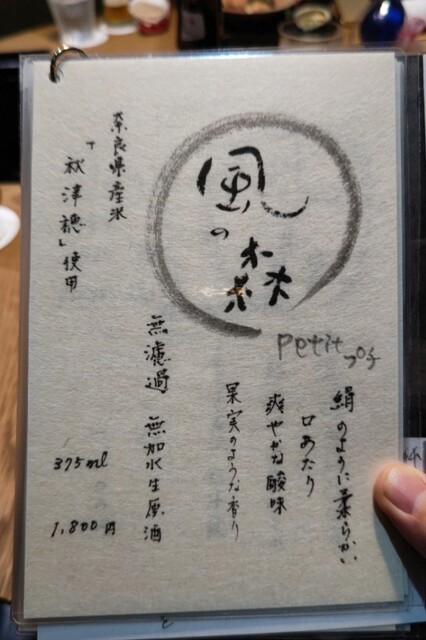 風の森
petit プチ
絹のように柔らかい
口あたり
爽やかな酸味
果実のような香り
無濾過 無加水生原酒
奈良県産米
「秋津穂」使用
375ml
1,800円